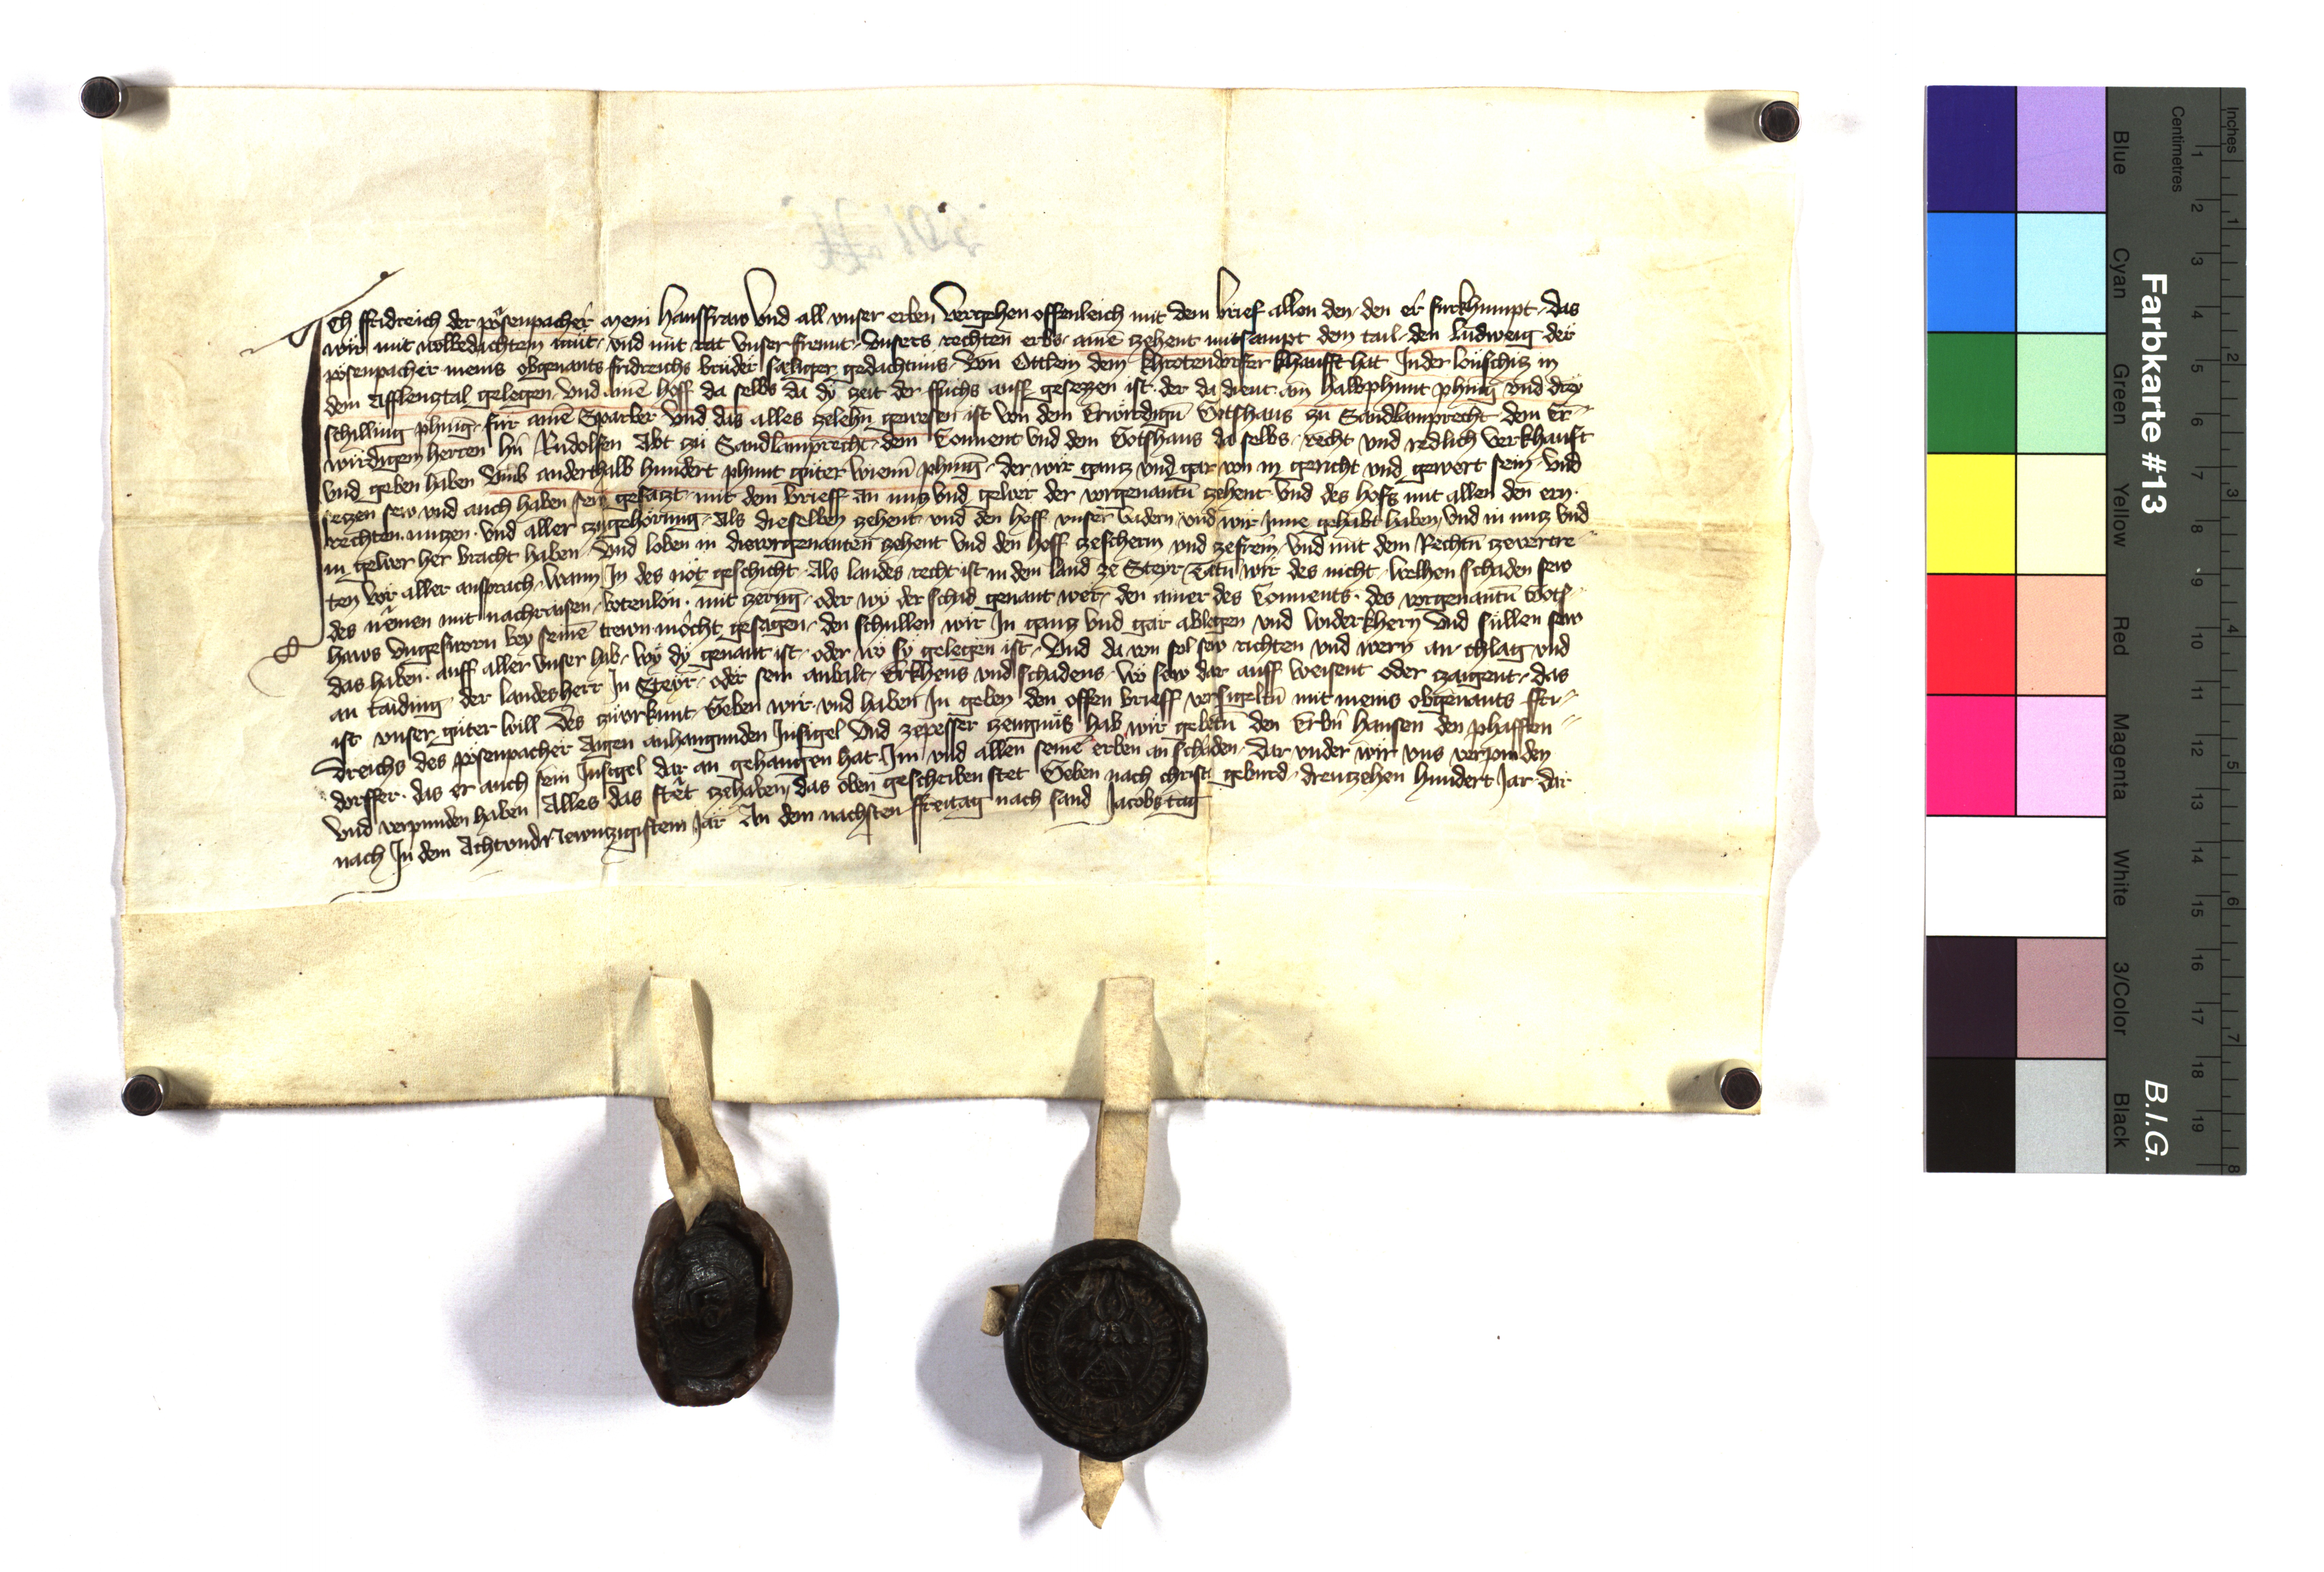 Ich ffridreich der pösenpacher mein Hausfraw Vnd all vnser erben Vergehen offenleich mit dem brief allen den den er furkhumpt das
wir mit wolbedachtem müt vnd mit rat vnser frewnt vnsers rechten erbs ainē zehent mitsampt dem tail den Ludweig der
pösenpacher meins obgenants fridreichs brüder säliger gedächtnüs Von Ottlein dem khrotendorfer khaufft hat In der löuschitz in
dem Afflenztal gelegen Vnd ainē hoff da selbs da dÿ zeit der ffuchs auff gesezzen ist der da dient ain halb phunt phnīg vnd dreÿ
schilling phnīg für ainē Sparber Vnd das alles zelehn gewesen ist von dem Erwirdign̄ Gotshaus zu Sandlamprecht dem Er
wirdigen herren hn̄ Rudolfen Abt zü Sandlamprecht dem Conuent vnd dem Gotshaus da selbs recht vnd redlich verkhauft
vnd geben haben Vmb anderthalb hundert phunt güter wienn̄ phnīg der wir gancz vnd gar von in gericht vnd gewert sein Vnd
seczen sew vnd auch haben sew gesaczt mit dem brieff an nucz vnd gewer der vorgenantn̄ zehent vnd des hofs mit allen den ern
rechten nuczen vnd aller zugehörung Als dieselben zehent vnd den hoff vnser vadern vnd wir Inne gehabt haben Vnd in nucz vnd
in gewer her bracht haben Vnd loben in die vorgenanten zehent vnd den hoff zescherm vnd zefreīn vnd mit dem Rechtn̄ zevertre
ten vor aller ansprach wann In des nöt geschicht Als landes recht ist in dem land ze Steyr Tätn̄ wir des nicht welhen schaden sew
des nēmen mit nachraisen botenlön mit zerūg oder wÿ der schad genant wer den ainer des Conuents des vorgenantn̄ Gots
haws vngesworn bey seinē trewn möcht gesagen den schullen wir In gancz vnd gar ablegen vnd widerkhern Vnd süllen sew
das haben auff aller vnser hab wÿ dÿ genant ist oder wo sÿ gelegen ist Vnd da von sol sew richten vnd wern an chlag vnd
an taiding der landesherr In Steyr oder sein anwalt Erkhens vnd schadens wo sew dar auff weisent oder czaigent das
ist vnser güter will Des zu vrkunt Geben wir vnd haben In geben den offen brieff versigeltn̄ mit meins obgenants ffri
dreichs des pösenpacher Aigen anhangunden Insigel Vnd zepesser zeugnüs hab wir gebetn̄ den Erbn̄ hansen den phaffen
dorffer das er auch sein Insigel dar an gehangen hat Im vnd allen seinē erben an schaden dar vnder wir vns verpinden
Vnd verpunden haben Alles das stet zehaben das oben geschriben stet Geben nach christi geburd dreuczehen hundert Jar dar
nach In dem Achtvnd Newnzigistem Jar An dem nachsten ffreitag nach sand Jacobs tag
Farbkarte #13
B.I.G.
Inches
Centimetres
1 2 3 4 5 6 7 8 9 10 11 12 13 14 15 16 17 18 19
1 2 3 4 5 6 7 8
Blue
Cyan
Green
Yellow
Red
Magenta
White
3/Color
Black